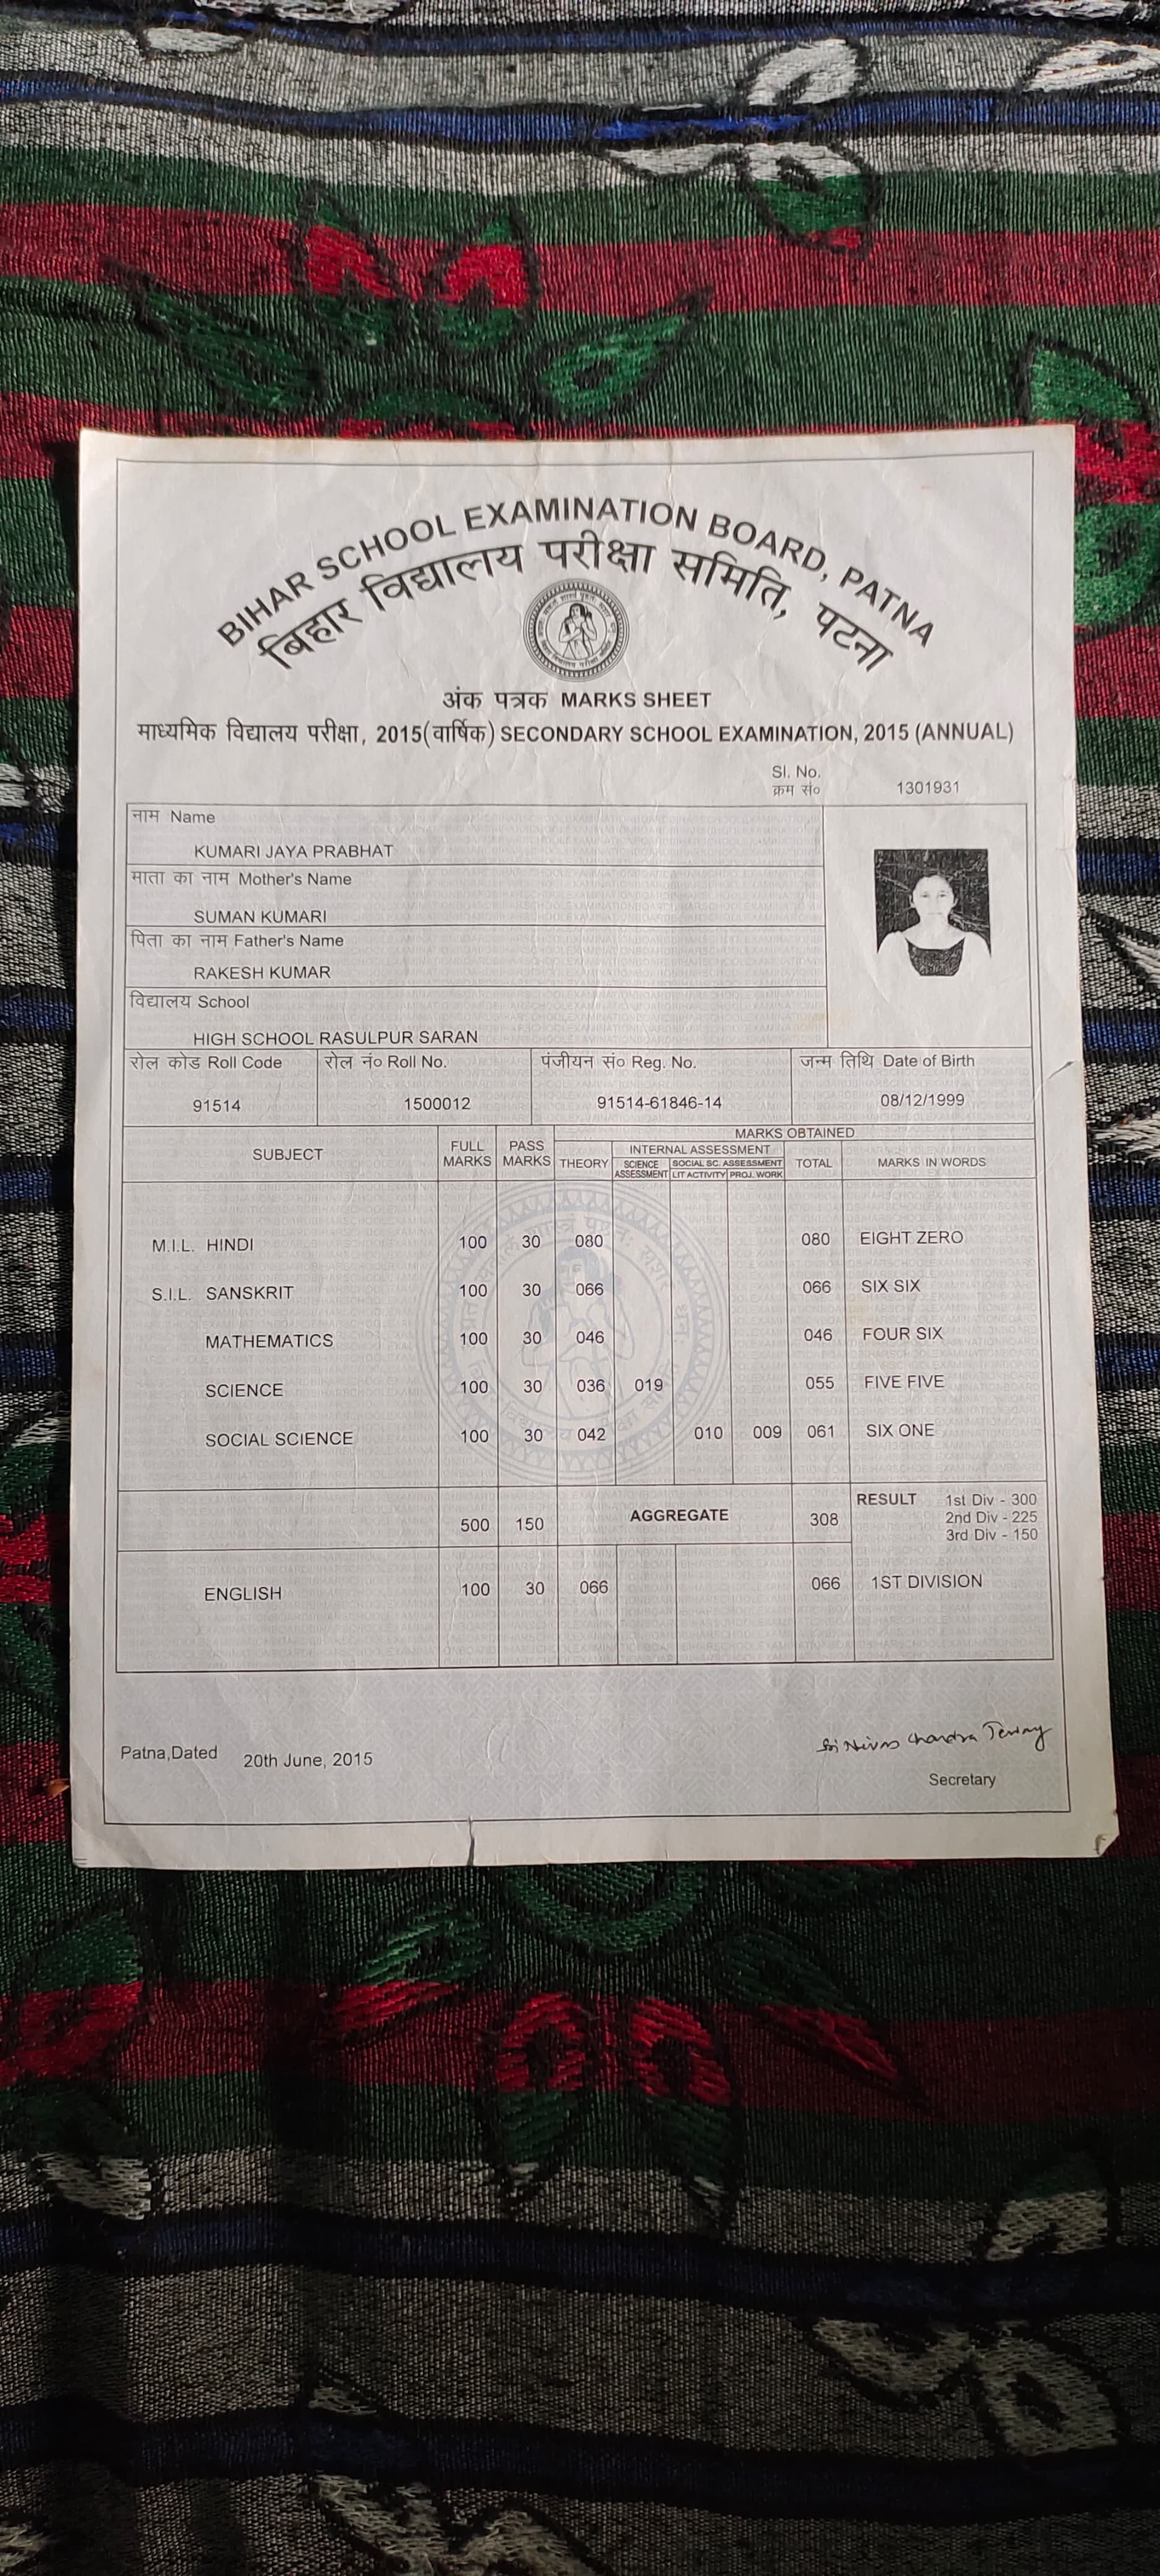 BIHAR SCHOOL EXAMINATION BOARD, PATNA
बिहार विद्यालय परीक्षा समिति, पटना
अंक पत्रक MARKS SHEET
माध्यमिक विद्यालय परीक्षा, 2015(वार्षिक) SECONDARY SCHOOL EXAMINATION, 2015 (ANNUAL)
Sl. No.
क्रम सं० 1301931
नाम Name
KUMARI JAYA PRABHAT
माता का नाम Mother's Name
SUMAN KUMARI
पिता का नाम Father's Name
RAKESH KUMAR
विद्यालय School
HIGH SCHOOL RASULPUR SARAN
रोल कोड Roll Code रोल नं० Roll No. पंजीयन सं० Reg. No. जन्म तिथि Date of Birth
91514 1500012 91514-61846-14 08/12/1999
MARKS OBTAINED
SUBJECT FULL MARKS PASS MARKS THEORY INTERNAL ASSESSMENT TOTAL MARKS IN WORDS
SCIENCE ASSESSMENT SOCIAL SC. ASSESSMENT
LIT ACTIVITY PROJ. WORK
M.I.L. HINDI 100 30 080 080 EIGHT ZERO
S.I.L. SANSKRIT 100 30 066 066 SIX SIX
MATHEMATICS 100 30 046 046 FOUR SIX
SCIENCE 100 30 036 019 055 FIVE FIVE
SOCIAL SCIENCE 100 30 042 010 009 061 SIX ONE
500 150 AGGREGATE 308 RESULT 1st Div - 300
2nd Div - 225
3rd Div - 150
ENGLISH 100 30 066 066 1ST DIVISION
Patna,Dated 20th June, 2015
Secretary